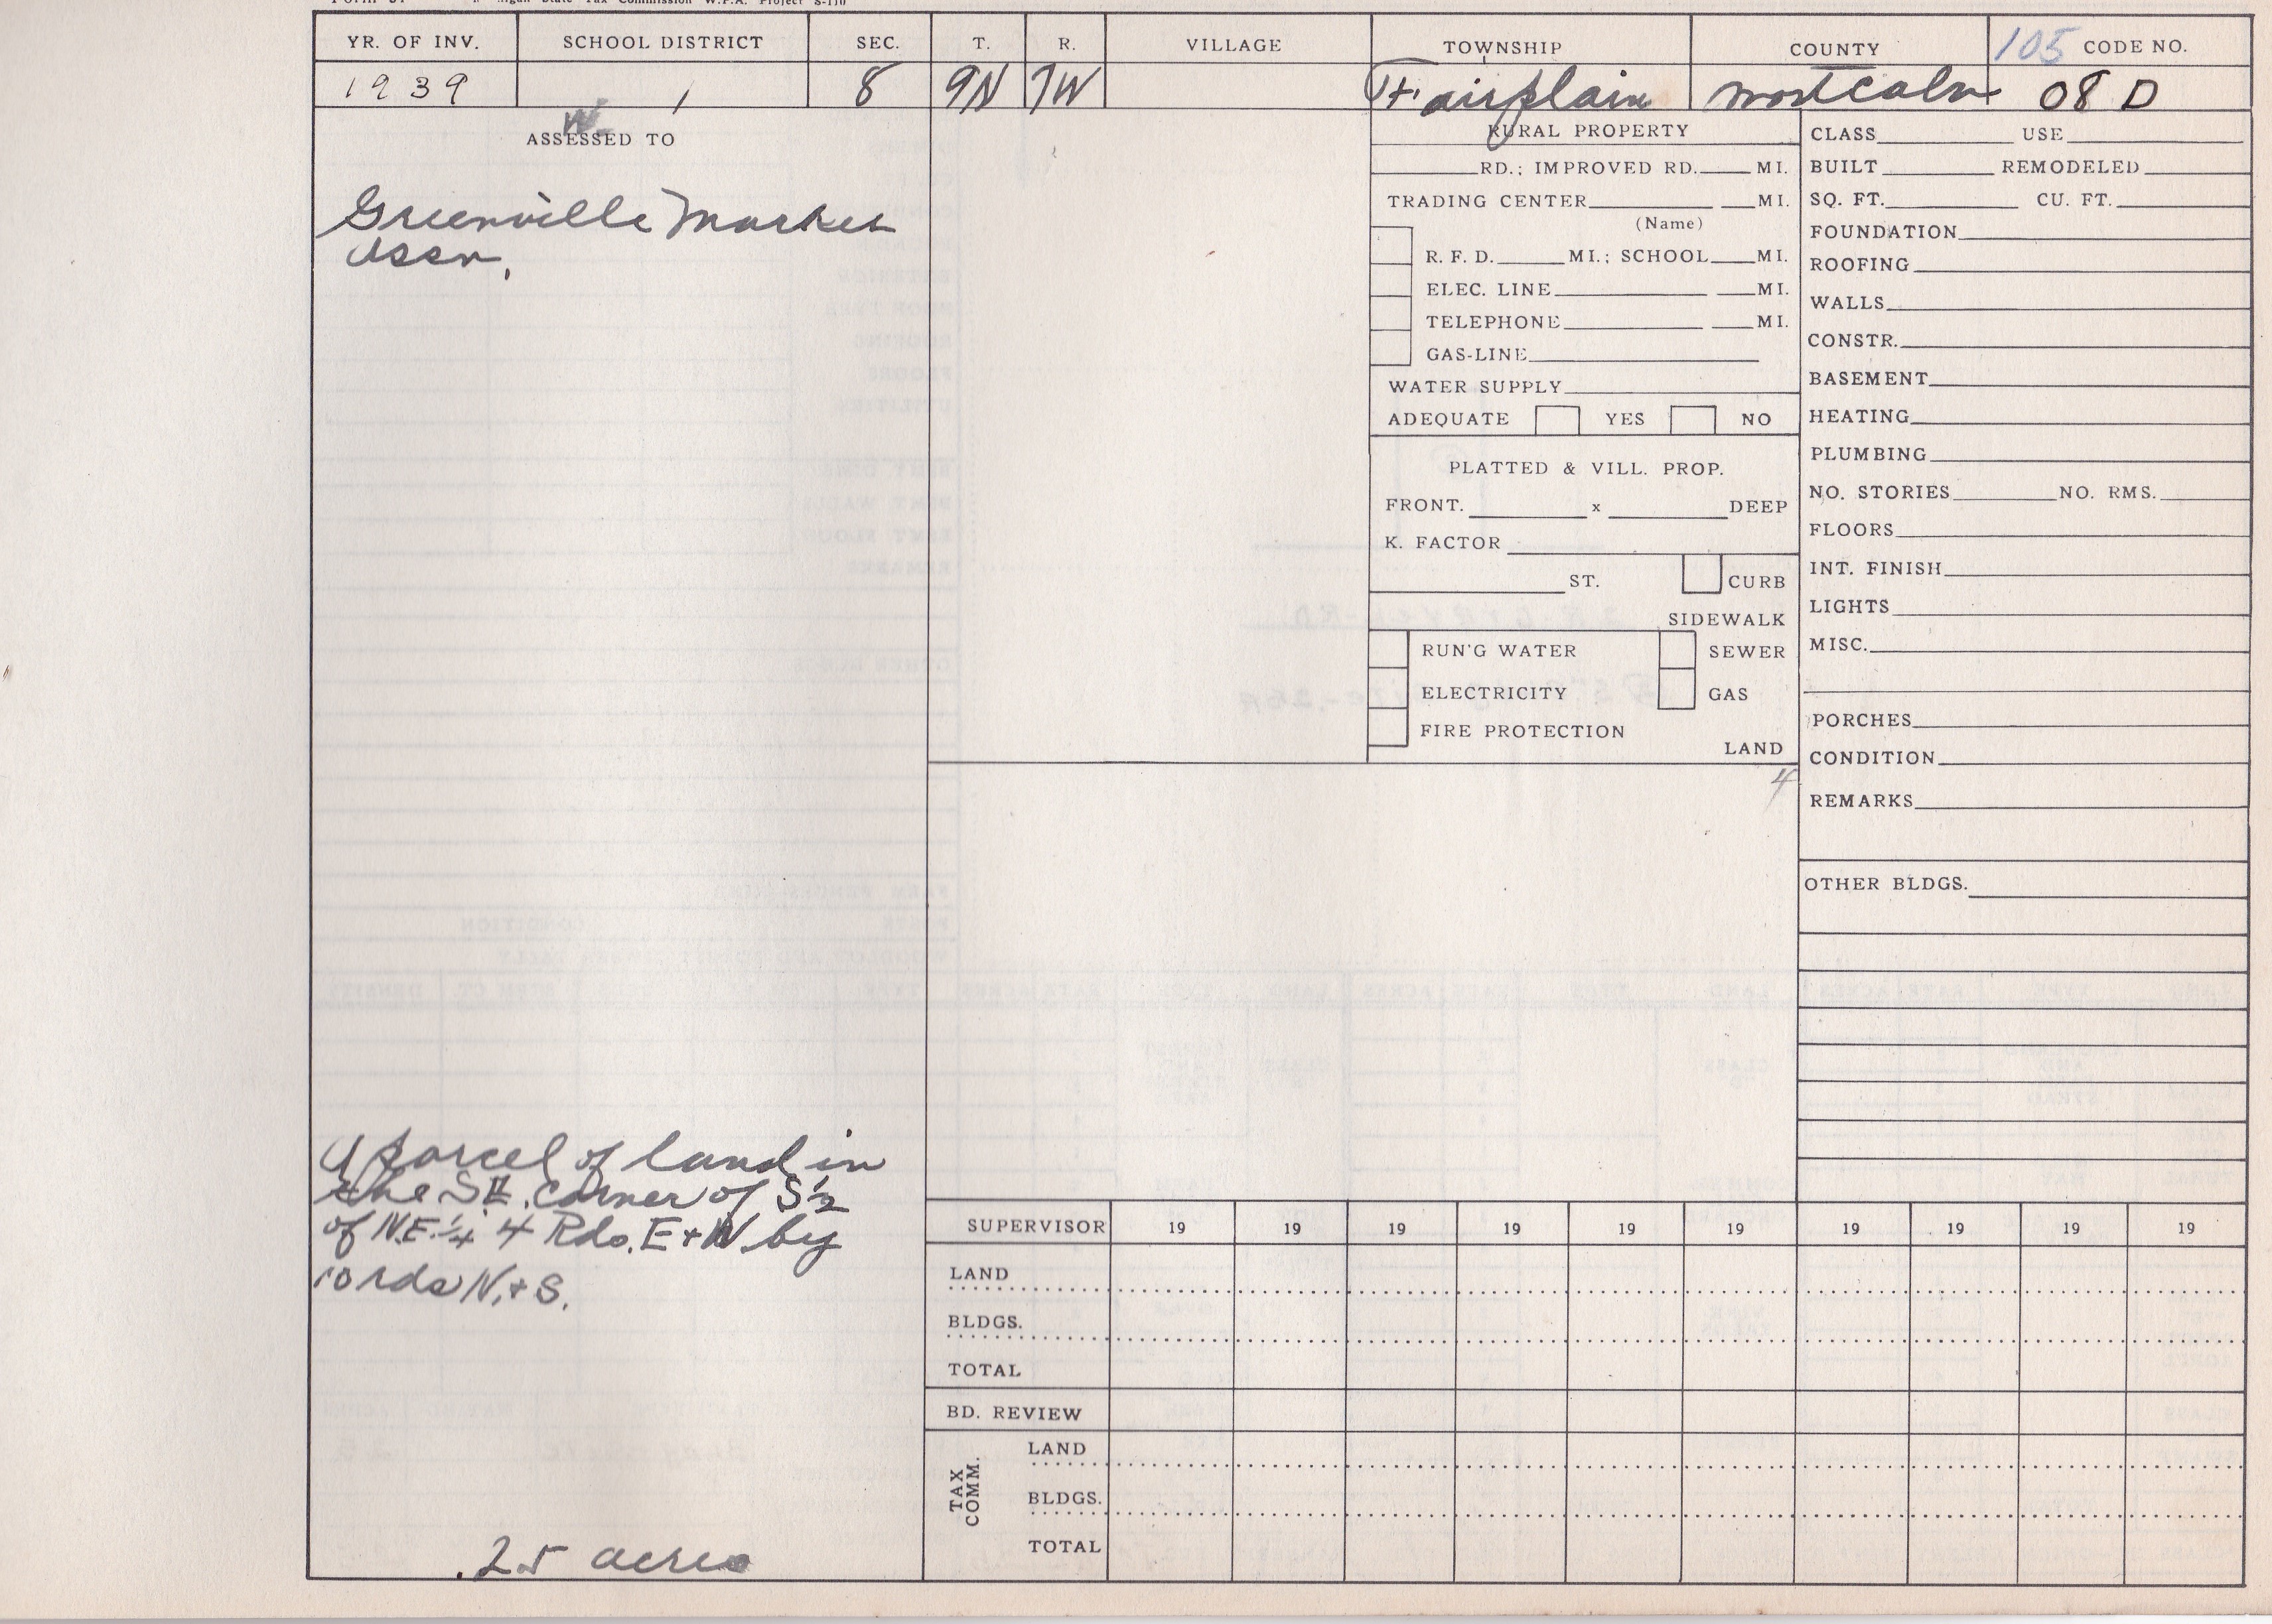 Michigan State Tax Commission W.P.A. Project S-110
YR. OF INV. SCHOOL DISTRICT SEC. T. R. VILLAGE TOWNSHIP COUNTY 105 CODE NO.
1939 1 8 9N 7W Fairplain Montcalm 08 D
W.
ASSESSED TO
Greenville Market
Assn.
A parcel of land in
the S.E. corner of S 1/2
of N.E. 1/4 4 Rds. E + W by
10 rds N. + S.
.25 acres
RURAL PROPERTY
RD.; IMPROVED RD. MI.
TRADING CENTER MI.
(Name)
R. F. D. MI.; SCHOOL MI.
ELEC. LINE MI.
TELEPHONE MI.
GAS-LINE
WATER SUPPLY
ADEQUATE YES NO
PLATTED & VILL. PROP.
FRONT. x DEEP
K. FACTOR
ST. CURB
SIDEWALK
RUN'G WATER SEWER
ELECTRICITY GAS
FIRE PROTECTION
LAND
4
CLASS USE
BUILT REMODELED
SQ. FT. CU. FT.
FOUNDATION
ROOFING
WALLS
CONSTR.
BASEMENT
HEATING
PLUMBING
NO. STORIES NO. RMS.
FLOORS
INT. FINISH
LIGHTS
MISC.
PORCHES
CONDITION
REMARKS
OTHER BLDGS.
SUPERVISOR 19 19 19 19 19 19 19 19 19 19
LAND
BLDGS.
TOTAL
BD. REVIEW
TAX COMM.
LAND
BLDGS.
TOTAL